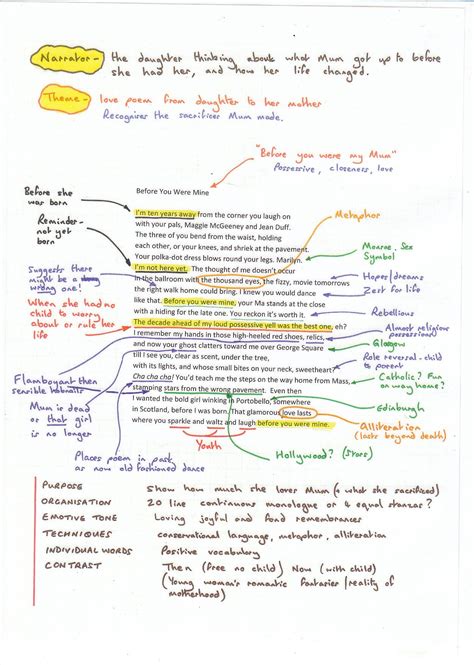 Narrator - the daughter thinking about what Mum got up to before
she had her, and how her life changed.
Theme - love poem from daughter to her mother
Recognises the sacrifices Mum made.
"Before you were my Mum"
Possessive, closeness, love
Before she
was born
Before You Were Mine
Metaphor
I'm ten years away from the corner you laugh on
with your pals, Maggie McGeeney and Jean Duff.
Reminder -
not yet
born
The three of you bend from the waist, holding
each other, or your knees, and shriek at the pavement.
Your polka-dot dress blows round your legs. Marilyn.
Monroe, Sex
Symbol
I'm not here yet. The thought of me doesn't occur
Suggests there
might be a
wrong one!
in the ballroom with the thousand eyes, the fizzy, movie tomorrows
Hopes/dreams
Zest for life
the right walk home could bring. I knew you would dance
like that. Before you were mine, your Ma stands at the close
When she had no
child to worry
about or rule her
life
with a hiding for the late one. You reckon it's worth it.
Rebellious
The decade ahead of my loud possessive yell was the best one, eh?
Almost religious
possessions!
I remember my hands in those high-heeled red shoes, relics,
and now your ghost clatters toward me over George Square
Glasgow
till I see you, clear as scent, under the tree,
Role reversal - child
to parent
with its lights, and whose small bites on your neck, sweetheart?
Flamboyant then
sensible hobnails
Cha cha cha! You'd teach me the steps on the way home from Mass,
Catholic? Fun
on way home?
stamping stars from the wrong pavement. Even then
Mum is dead
or that girl
is no longer
I wanted the bold girl winking in Portobello, somewhere
Edinburgh
in Scotland, before I was born. That glamorous love lasts
Alliteration
(lasts beyond death)
where you sparkle and waltz and laugh before you were mine.
Youth
Hollywood? (Stars)
Places poem in past
as now old fashioned dance
PURPOSE Show how much she loves Mum (& what she sacrificed)
ORGANISATION 20 line continuous monologue or 4 equal stanzas?
EMOTIVE TONE Loving joyful and fond remembrances
TECHNIQUES conversational language, metaphor, alliteration
INDIVIDUAL WORDS Positive vocabulary
CONTRAST Then (free no child) Now (with child)
(Young woman's romantic fantasies / reality of
motherhood)